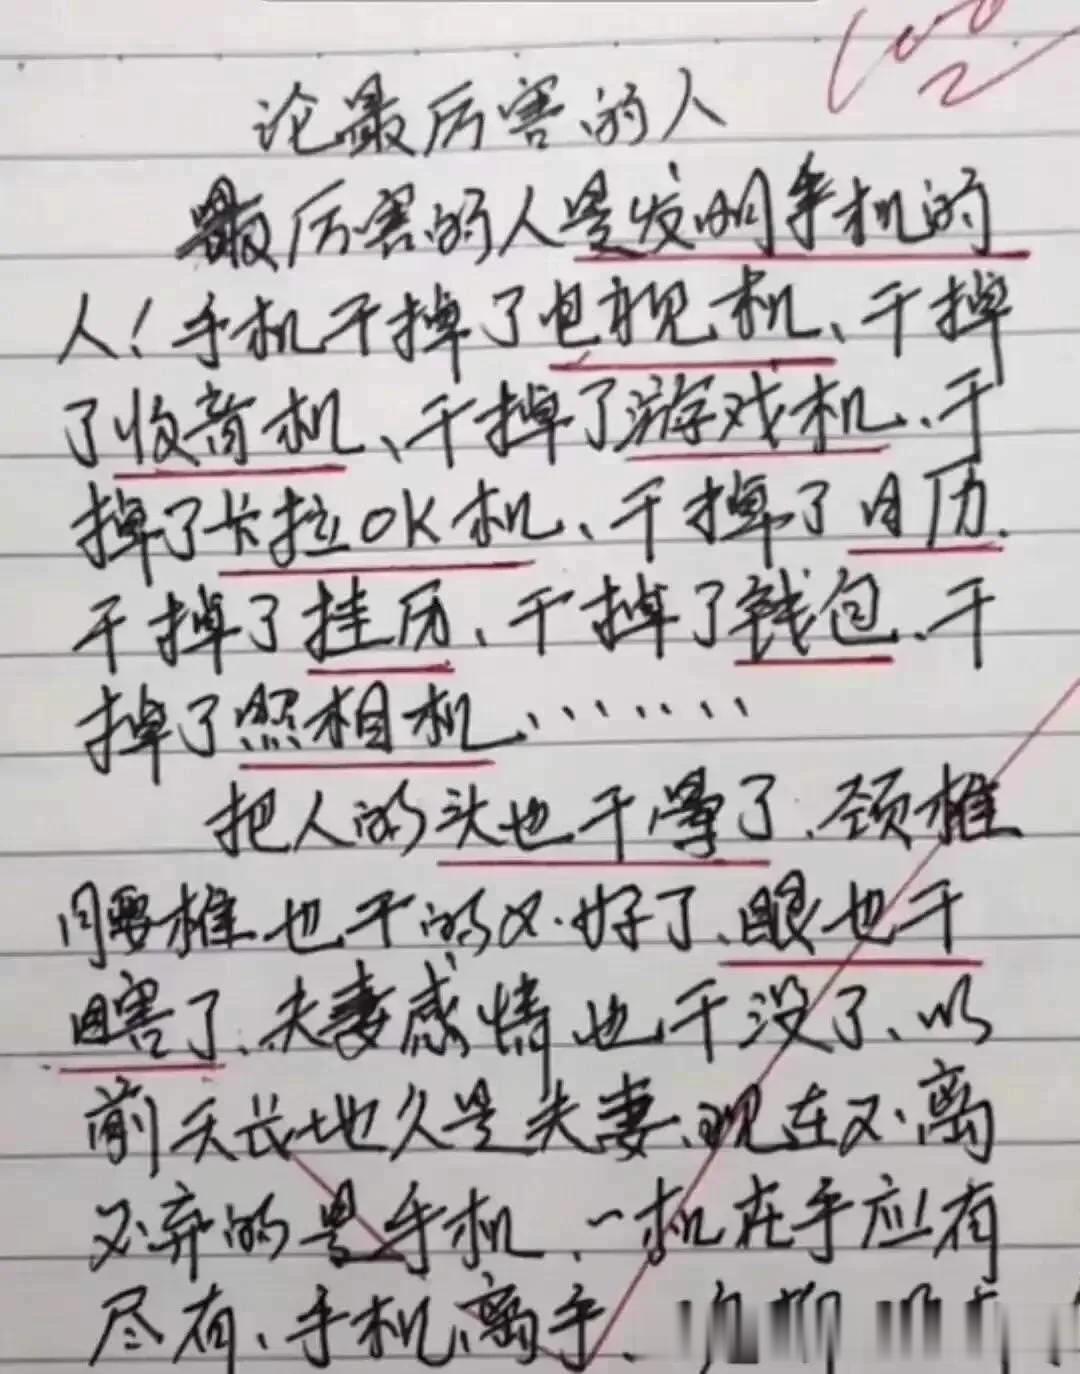 100
论最厉害的人
最厉害的人是发明手机的
人！手机干掉了电视机、干掉
了收音机、干掉了游戏机、干
掉了卡拉OK机、干掉了日历、
干掉了挂历、干掉了钱包、干
掉了照相机、……
把人的头也干晕了、颈椎
腰椎也干的不好了、眼也干
瞎了、夫妻感情也干没了、以
前天长地久是夫妻、现在不离
不弃的是手机、一机在手应有
尽有、手机离手、